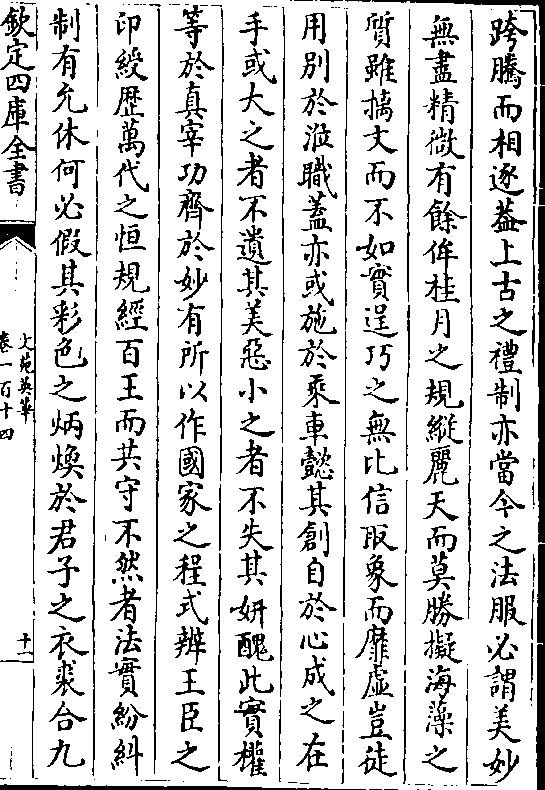 跨騰而相逐葢上古之禮制亦當今之法服必謂美妙
無盡精微有餘侔桂月之規縱麗天而莫勝擬海藻之
質雖摛文而不如實逞巧之無比信取象而靡虚豈徒
用别於涖職蓋亦或施於乘車懿其創自於心成之在
手或大之者不遺其美惡小之者不失其妍醜此實權
等於真宰功齊於妙有所以作國家之程式辨王臣之
印綬歴萬代之恒規經百王而共守不然者法實紛糾
制有允休何必假其彩色之炳煥於君子之衣裘合九
欽定四庫全書
文苑英華
卷一百十四
十一